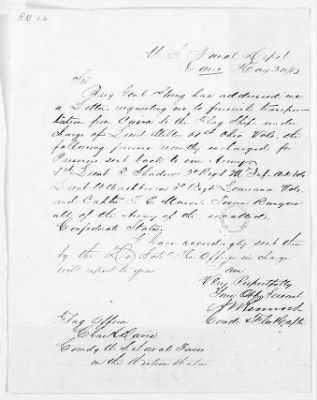 U. S. Naval Depot
Cairo May 30/62
Sir
Brig Genl Strong has addressed me
a Letter, requesting me to furnish transpor-
tation from Cairo to the Flag Ship, under
charge of Lieut Ohio Vols, the
following persons recently exchanged for
Prisoners sent back to our Army,
1st Lieut Shadow 3d Regt Inf. Ark Vols
Lieut 3d Regt Louisiana Vols,
and Captn T. C. Mason, Texan Rangers
all of the Army of the
Confederate States,
I have accordingly sent them
by the The Officer in charge
will report to you
I am
Very Respectfully
Your Obt Servant
A M Pennock
Comdr & Fleet Captn
Flag Officer
Chas H. Davis
Comdg U. S. Naval Forces
on the Western Waters